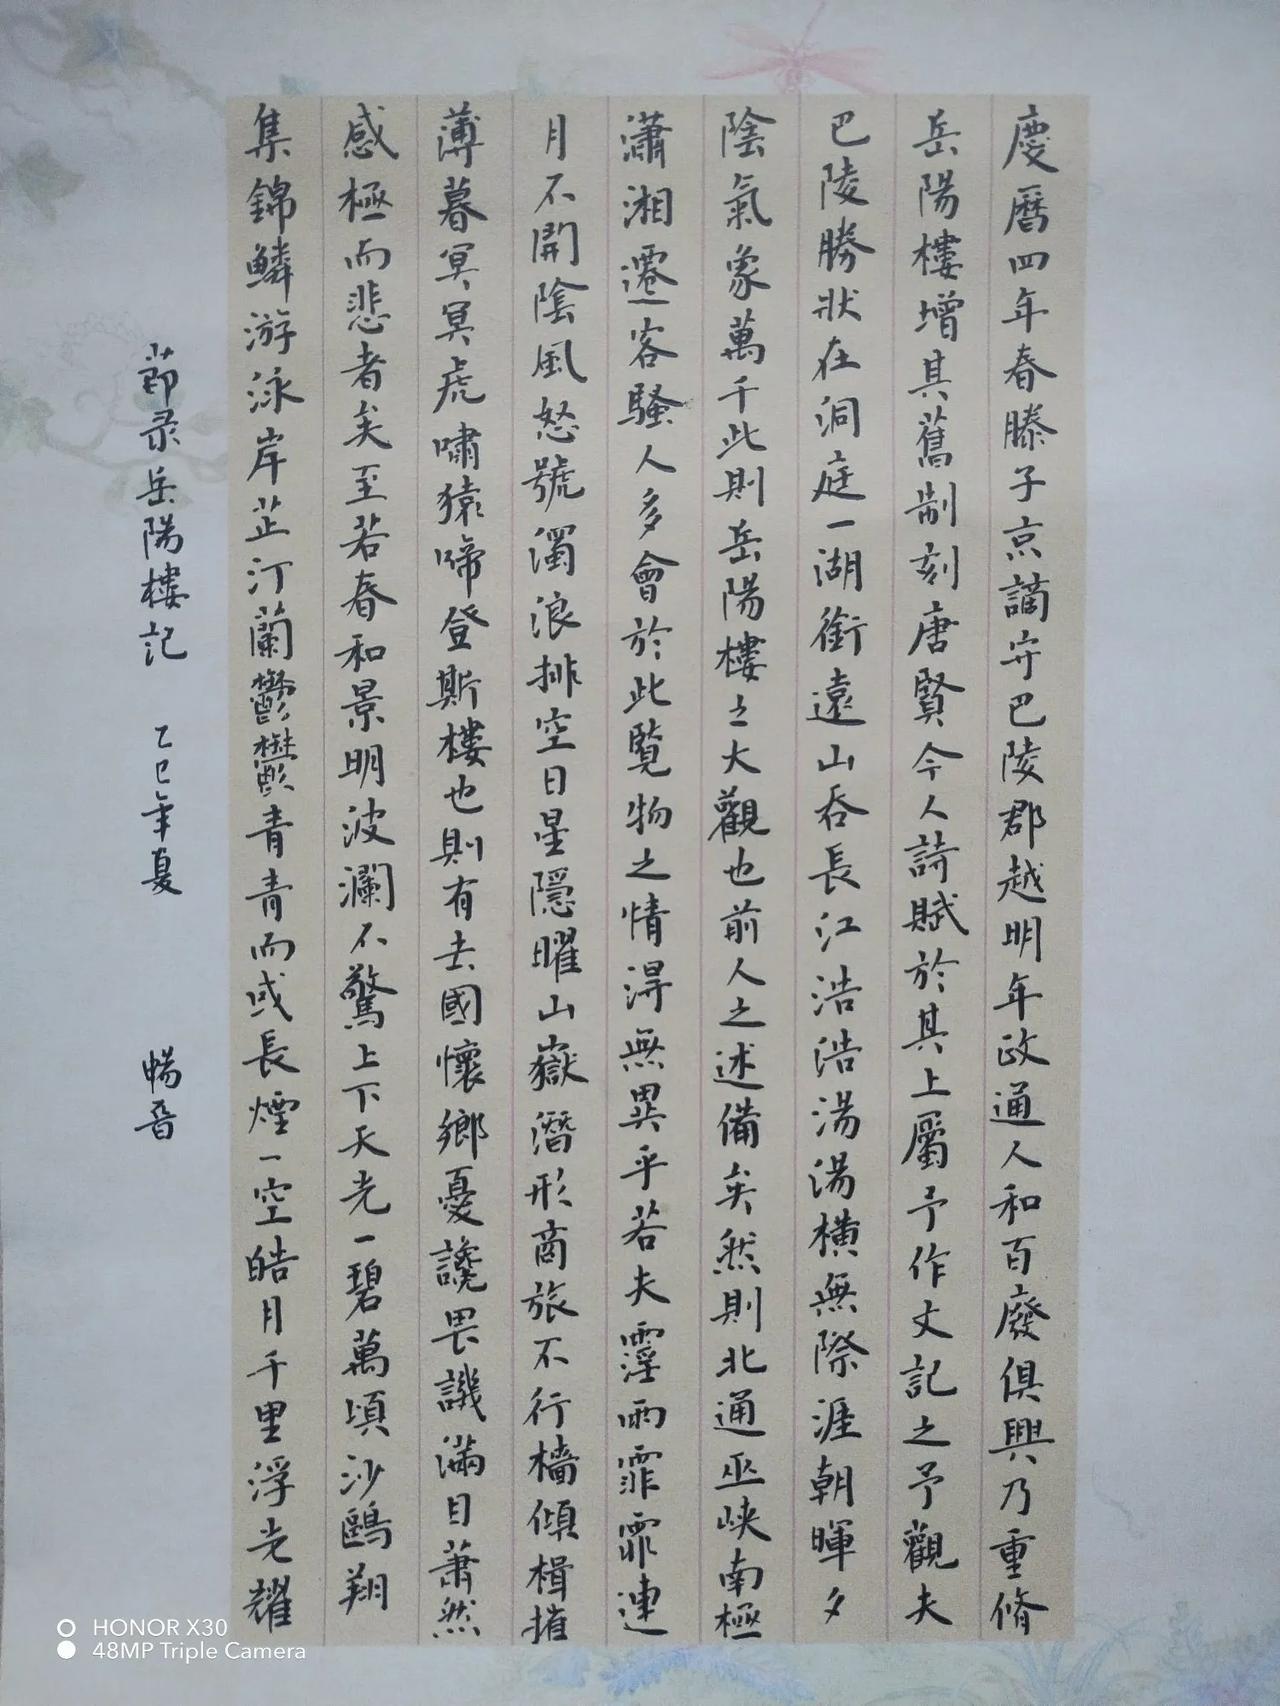 慶曆四年春滕子京謫守巴陵郡越明年政通人和百廢俱興乃重脩
岳陽樓增其舊制刻唐賢今人詩賦於其上屬予作文記之予觀夫
巴陵勝狀在洞庭一湖銜遠山吞長江浩浩湯湯橫無際涯朝暉夕
陰氣象萬千此則岳陽樓之大觀也前人之述備矣然則北通巫峽南極
瀟湘遷客騷人多會於此覽物之情得無異乎若夫霪雨霏霏連
月不開陰風怒號濁浪排空日星隱曜山嶽潛形商旅不行檣傾楫摧
薄暮冥冥虎嘯猿啼登斯樓也則有去國懷鄉憂讒畏譏滿目蕭然
感極而悲者矣至若春和景明波瀾不驚上下天光一碧萬頃沙鷗翔
集錦鱗游泳岸芷汀蘭鬱鬱青青而或長煙一空皓月千里浮光耀
節录岳陽樓記 乙巳年夏 暢晋
HONOR X30
48MP Triple Camera